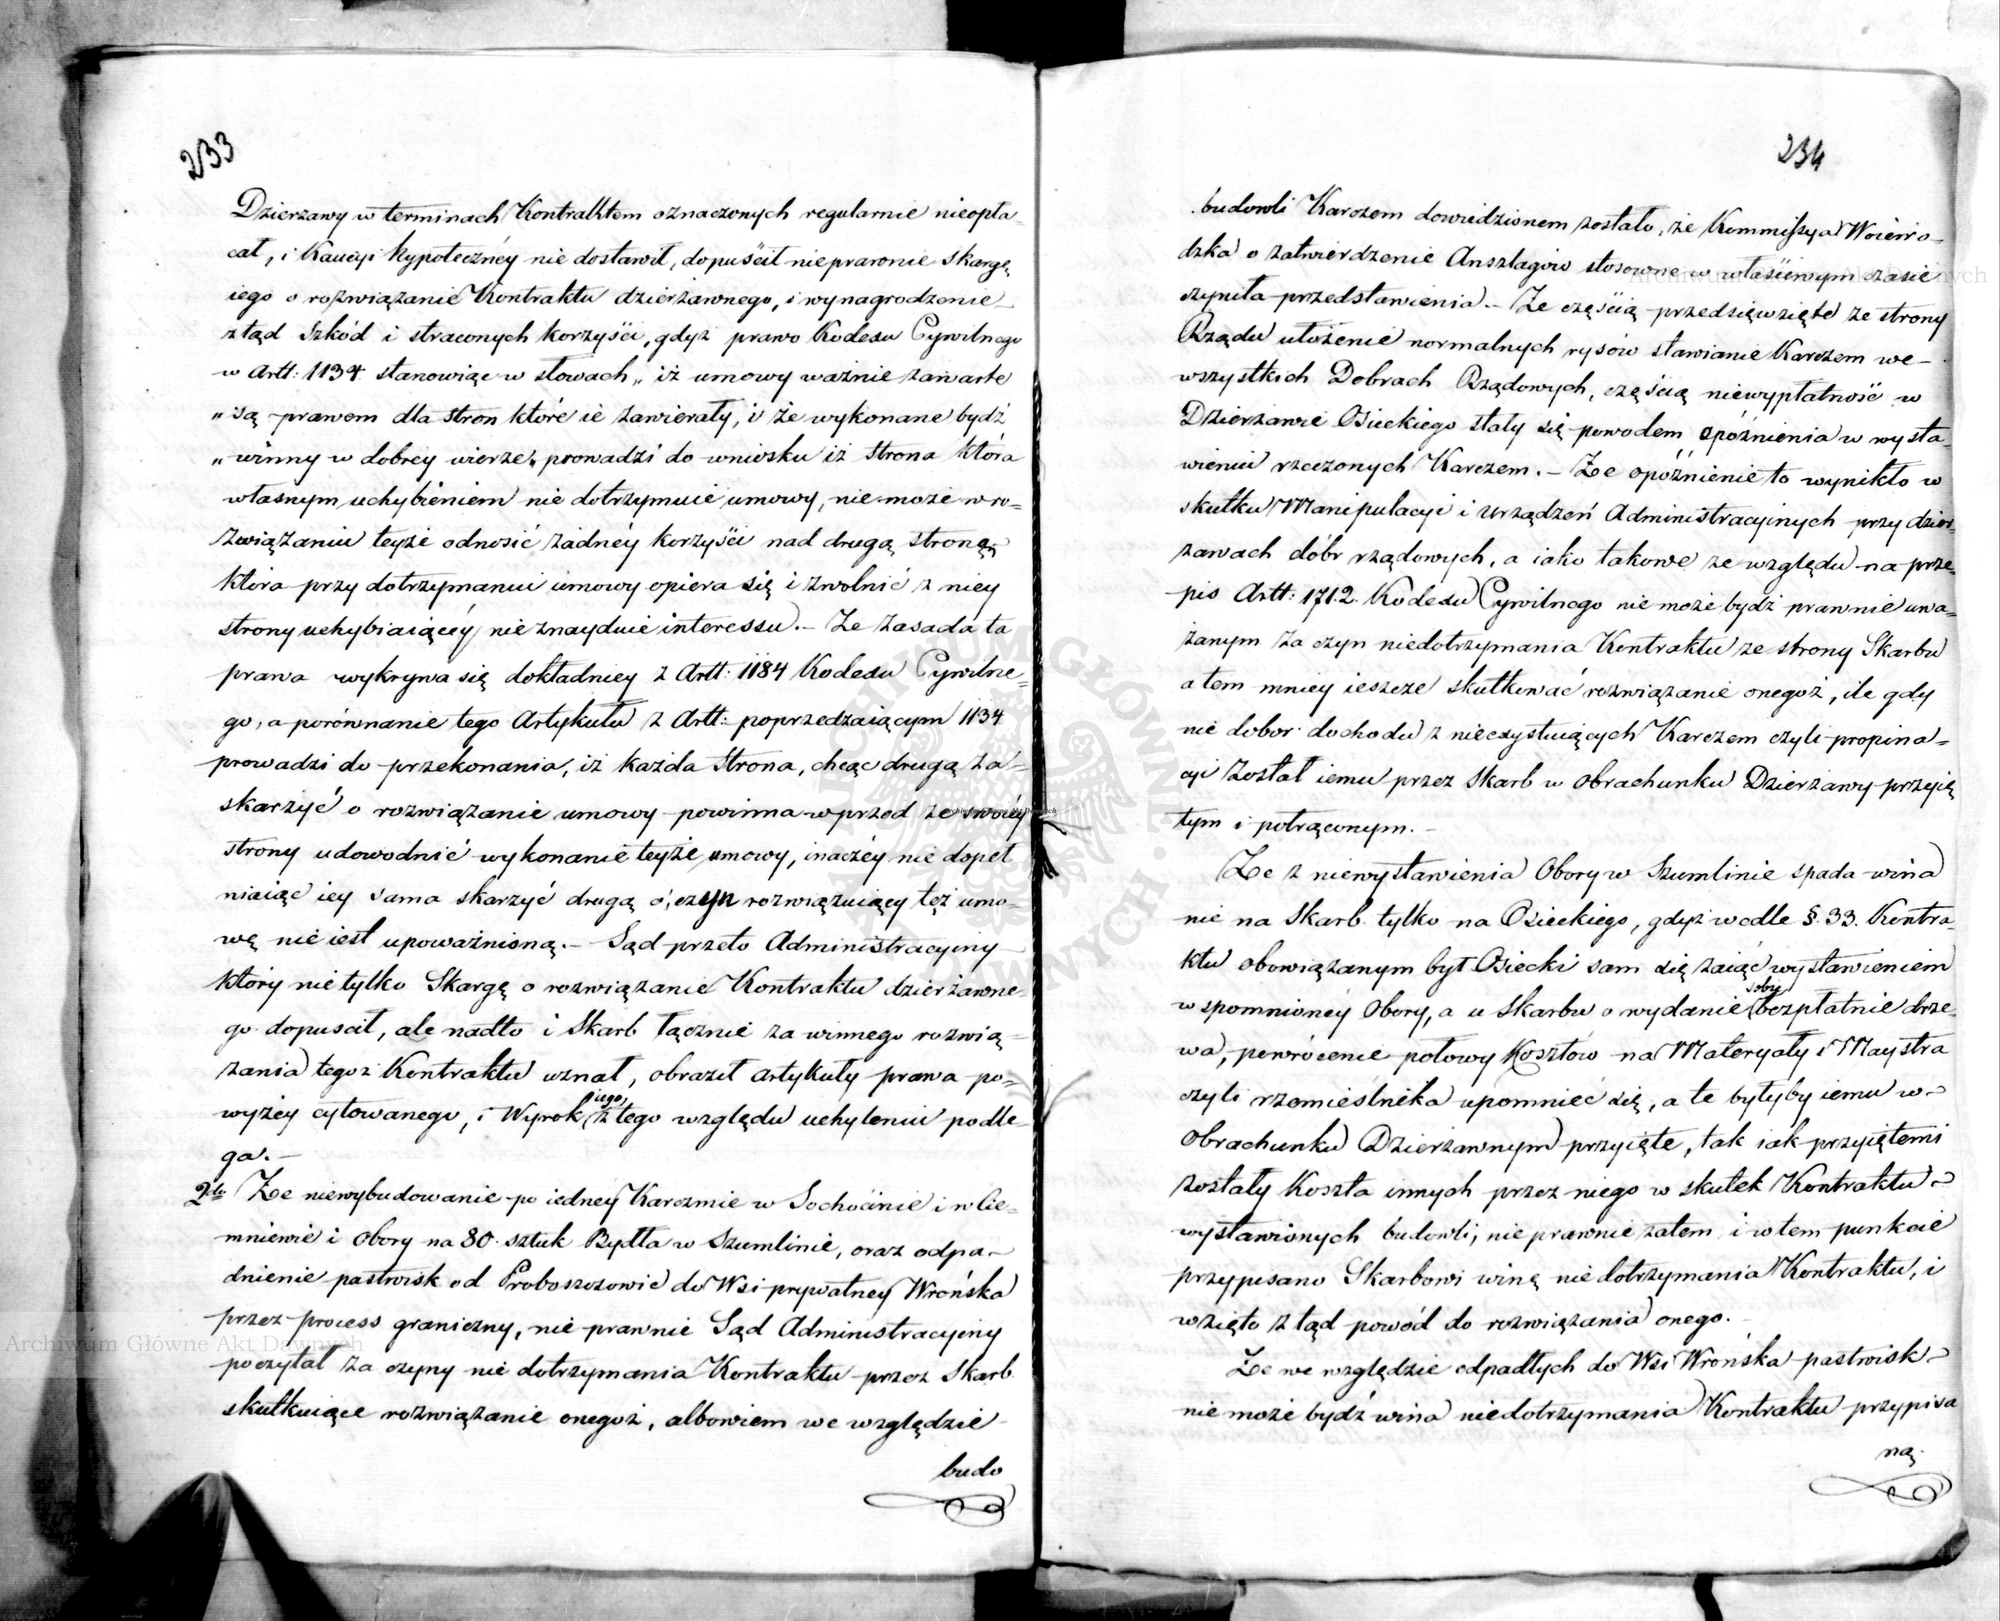 233
Dzierzawy w terminach Kontraktem oznaczonych regularnie nieopła-
cał, i Kaucyi hypotecznéy nie dostawił, dopuścił nieprawnie skargę
iego o rozwiązanie Kontraktu dzierzawnego, i wynagrodzenie
ztąd szkód i straconych korzyści, gdyż prawo Kodexu Cywilnego
w Artt: 1134 stanowiąc w słowach „ iż umowy ważnie zawarte
„ są prawem dla stron które ie zawierały, i że wykonane bydź
„ winny w dobrey wierze„ prowadzi do wniosku iż strona która
własnym uchybieniem nie dotrzymuie umowy, nie może w ro-
związaniu teyże odnosić żadnéy korzyści nad drugą stroną,
która przy dotrzymaniu umowy opiera się i zwolnić z niey
strony uchybiaiącéy nie znayduie interessu. – Ze zasada ta
prawa wykrywa się dokładniey z Artt: 1184 Kodexu Cywilne-
go, a porównanie tego Artykułu z Artt: poprzedzaiącym 1134
prowadzi do przekonania, iż każda strona, chcąc drugą za-
skarżyć o rozwiązanie umowy powinna wprzod ze swoiéy
strony udowodnić wykonanie teyże umowy, inaczéy nie dopeł
niaiąc iey sama skarzyć drugą o czyn rozwiązuiący też umo-
wę nie iest upoważnioną. – Sąd przeto Administracyiny
który nie tylko Skargę o rozwiązanie Kontraktu dzierżawne-
go dopuscił, ale nadto i Skarb łącznie za winnego rozwią-
zania tegoż Kontraktu uznał, obraził artykuły prawa po-
wyżey cytowanego, i Wyrok iego z tego względu uchyleniu podle-
ga. –
2do Ze niewybudowanie po iedney Karczmie w Sochocinie i w Cie-
mniewie i Obory na 80 sztuk Bydła w Szumlinie, oraz odpa-
dnienie pastwisk od Proboszczowic do Wsi prywatney Wrońska
przez process graniczny, nie prawnie Sąd Administracyiny
poczytał za czyny nie dotrzymania Kontraktu przez Skarb
skutkuiące rozwiązanie onegoż, albowiem we względzie
budo
234
budowli Karczem dowiedzionem zostało, że Kommissya Woiewo-
dzka o zatwierdzenie Anszlagów stosowne w właściwym czasie
czyniła przedstawienia. – Ze częścią przedsięwzięte ze strony
Rządu ułożenie normalnych rysów stawianie Karczem we-
wszystkich Dobrach Rządowych, częścią niewypłatność w
Dzierzawie Osieckiego stały się powodem opóźnienia w wysta-
wieniu rzeczonych Karczem. – Ze opóźnienie to wynikło w
skutku Manipulacyi i Urządzeń Administracyinych przy dzier-
zawach dóbr rządowych, a iako takowe ze względu na prze-
pis Artt: 1712. Kodexu Cywilnego nie może bydź prawnie uwa-
żanym za czyn niedotrzymania Kontraktu ze strony Skarbu
a tem mniey ieszcze skutkować rozwiązanie onegoż, ile gdy
nie dobor dochodu z nieexystuiących Karczem czyli propina-
cyi został iemu przez Skarb w obrachunku Dzierzawy przyię
tym i potrąconym. –
Ze z niewystawienia Obory w Szumlinie spada wina
nie na Skarb tylko na Osieckiego, gdyż wedle §. 33. Kontra-
ktu obowiązanym był Osiecki sam się zaiąć wystawieniem
wspomnionéy Obory, a u Skarbu o wydanie soby bezpłatnie drze-
wa, powrócenie połowy Kosztów na Materyały i Maystra
czyli rzemieślnika upomnieć się, a te byłyby iemu w
Obrachunku Dzierżawnym przyięte, tak iak przyiętemi
zostały Koszta innych przez niego w skutek Kontraktu
wystawionych budowli, nie prawnie zatem i w tem punkcie
przypisano Skarbowi winę nie dotrzymania Kontraktu, i
wzięto ztąd powód do rozwiązania onego.
Ze we względzie odpadłych do Wsi Wrońska pastwisk
nie może bydź wina niedotrzymania Kontraktu przypisa
ną.
Archiwum Główne Akt Dawnych